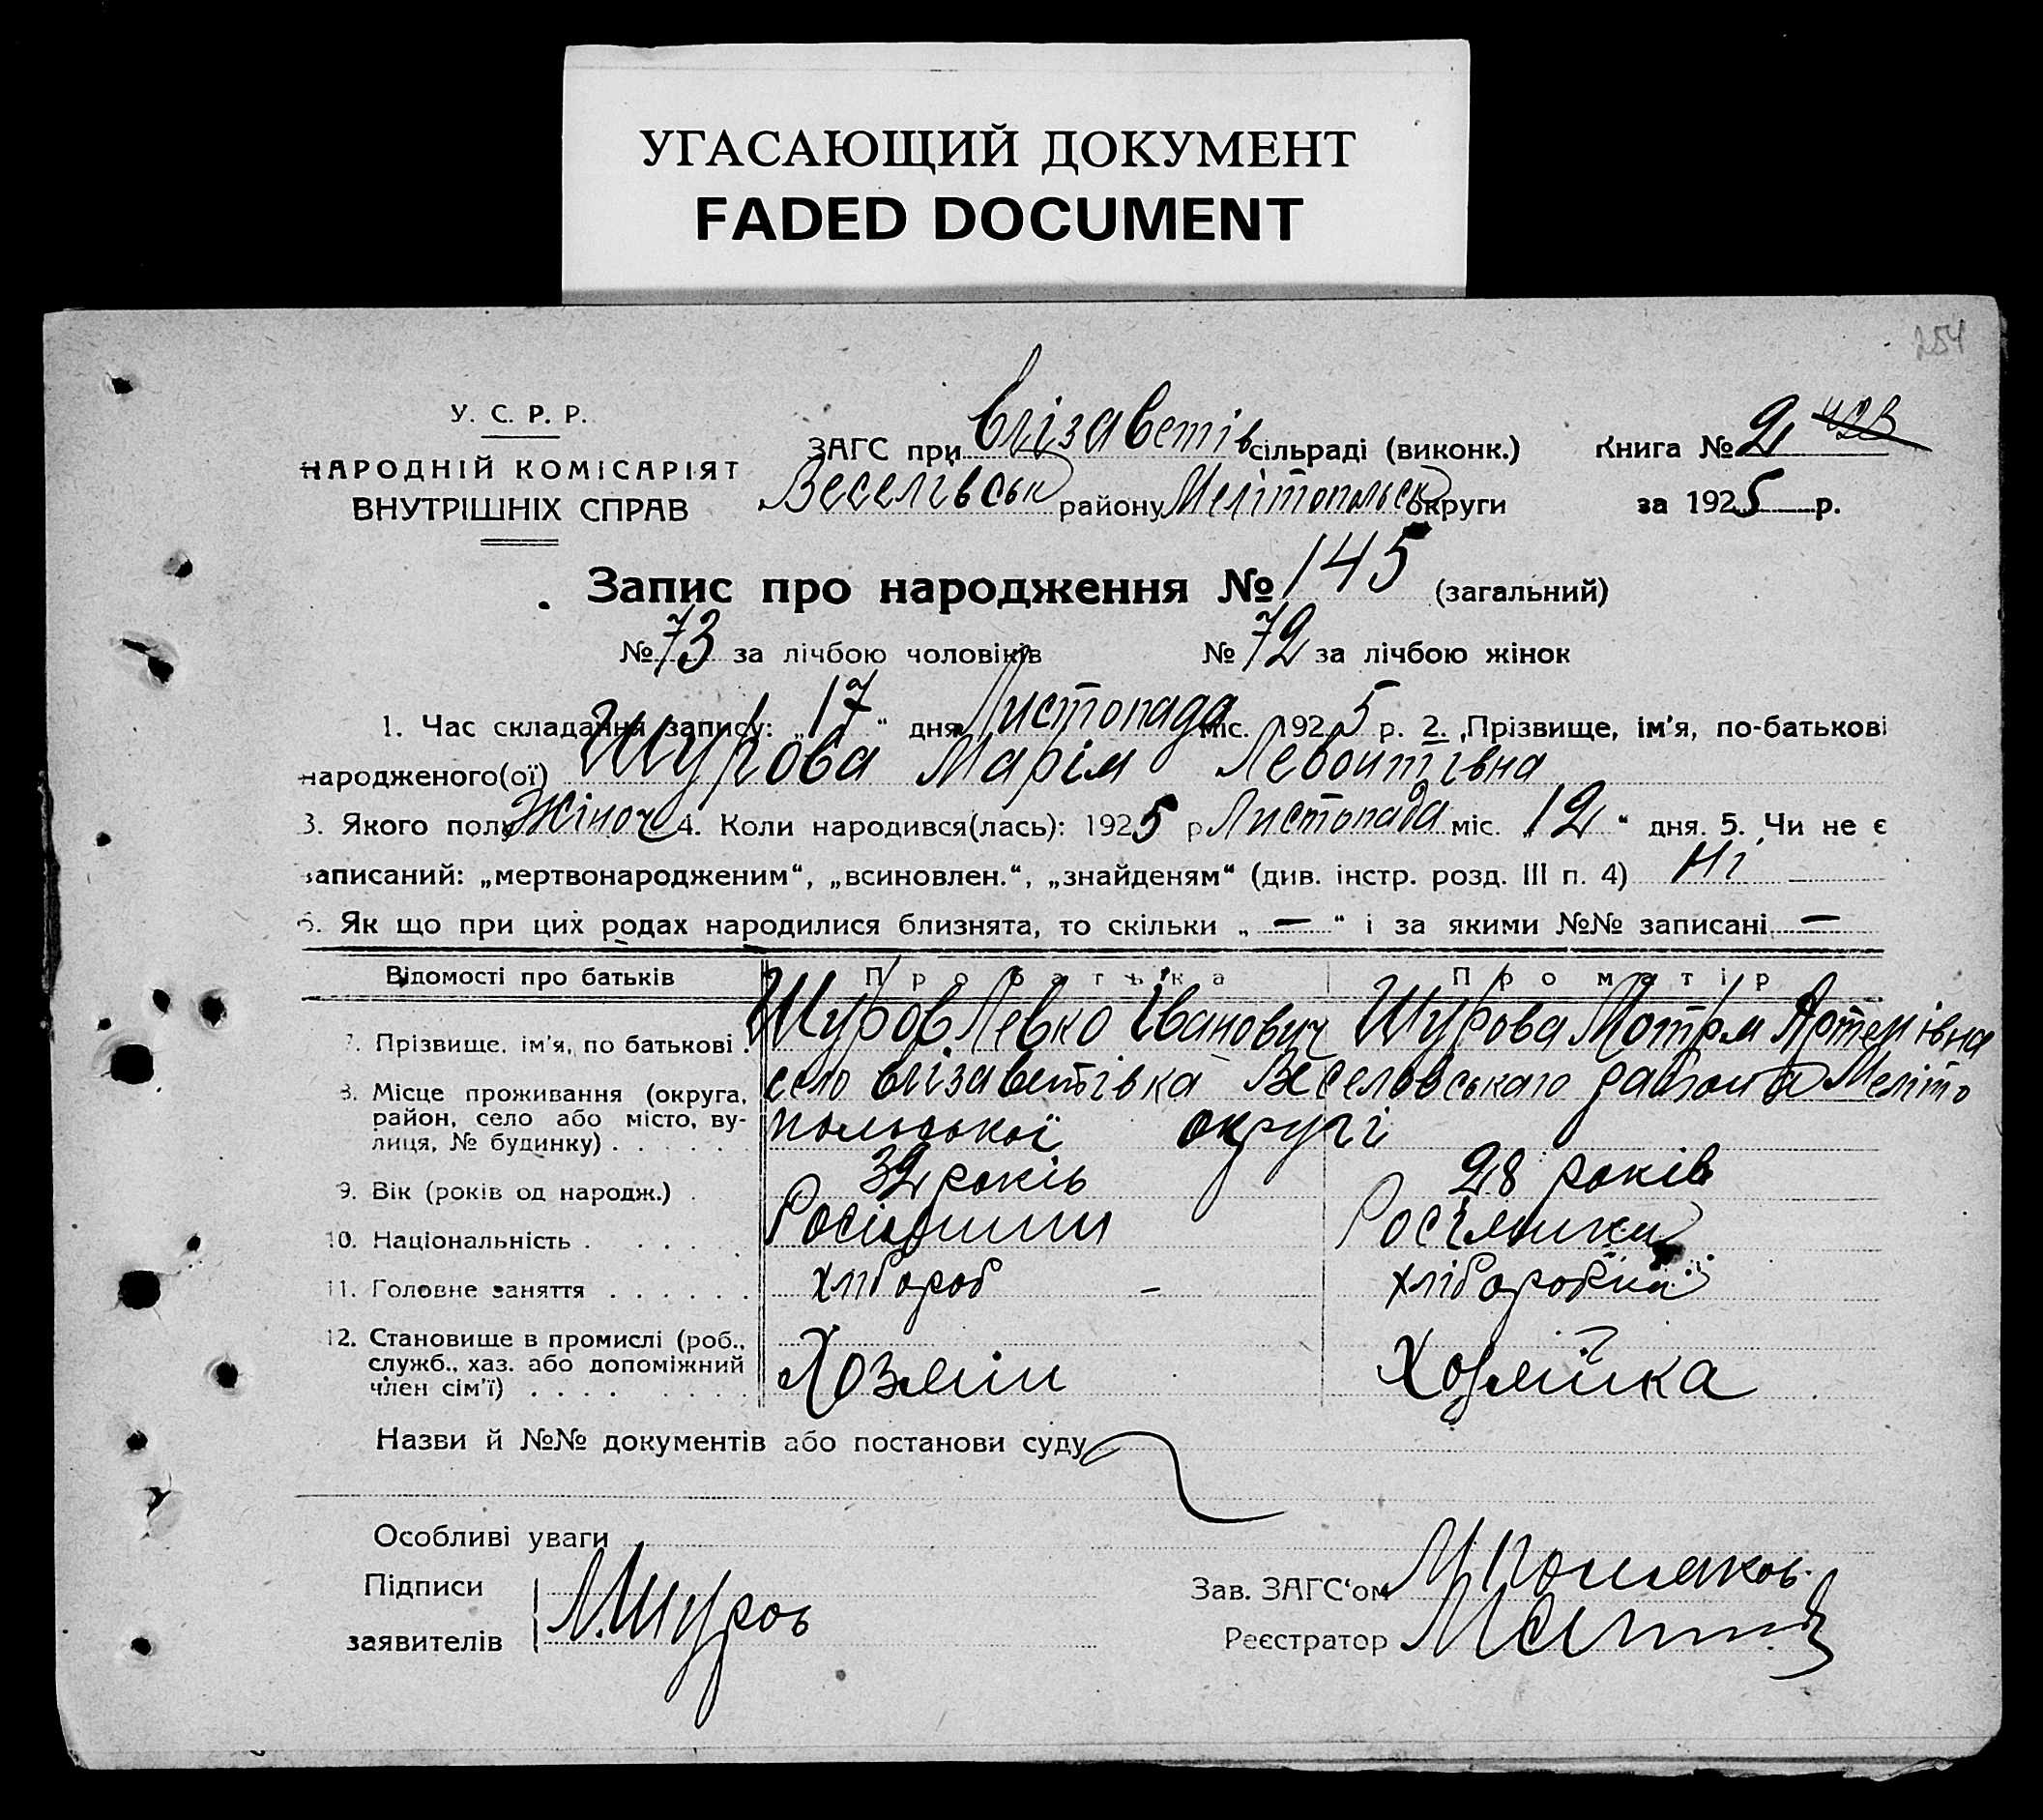 УГАСАЮЩИЙ ДОКУМЕНТ
FADED DOCUMENT
254
У. С. Р. Р.
НАРОДНІЙ КОМІСАРІЯТ
ВНУТРІШНІХ СПРАВ
ЗАГС при Єлізаветів сільраді (виконк.)
Веселівськ району Мелітопольськ округи
Книга № 2
за 1925 р.
Запис про народження № 145 (загальний)
№ 73 за лічбою чоловіків № 72 за лічбою жінок
1. Час складання запису: „17“ дня Листопада міс. 1925 р. 2. Прізвище, ім'я, по-батькові
народженого(ої) Шурова Марія Левонтівна
3. Якого полу Жіноч 4. Коли народився(лась): 1925 р Листопада міс. „12“ дня. 5. Чи не є
записаний: „мертвонародженим“, „всиновлен.“, „знайденям“ (див. інстр. розд. III п. 4) Ні
6. Як що при цих родах народилися близнята, то скільки „ — “ і за якими №№ записані —
Відомості про батьків Про батька Про матір
7. Прізвище, ім'я, по батькові . Шуров Левко Іванович Шурова Мотря Артемівна
8. Місце проживання (округа, село Єлізаветівка Веселовського району Меліто
район, село або місто, ву- польської округи
лиця, № будинку) . . . . . .
9. Вік (років од народж.) . 32 років 28 років
10. Національність . . . . . . Росіянин Росіянка
11. Головне заняття . . . . . . хлібороб - хліборобка
12. Становище в промислі (роб.,
служб., хаз. або допоміжний Хозяїн Хозяйка
член сім'ї) . . . . . . . .
Назви й №№ документів або постанови суду
Особливі уваги
Підписи
заявителів Л. Шуров
Зав. ЗАГС'ом
Реєстратор